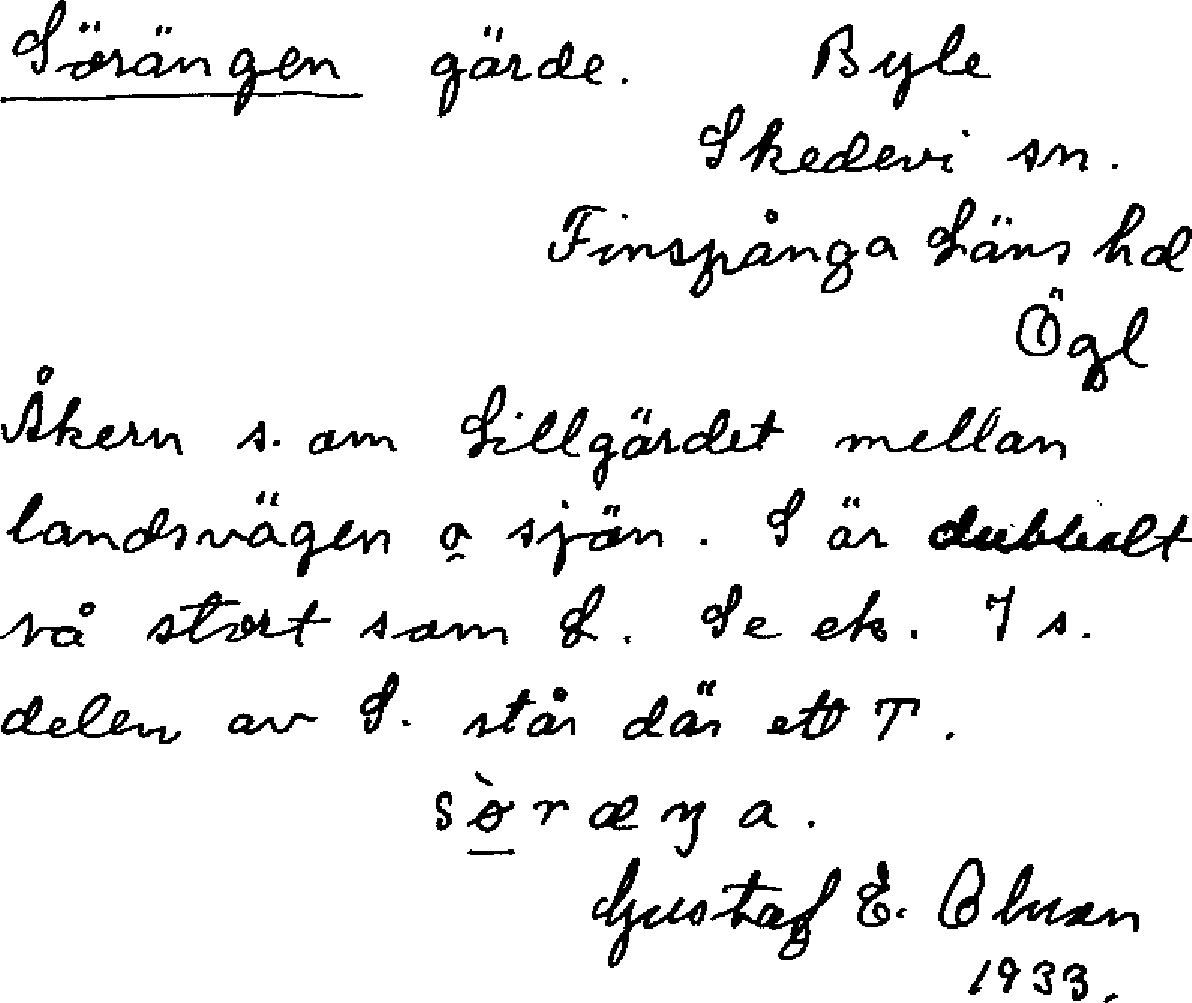 Sörängen gärde. Byle
Skedevi sn.
Finspånga Läns hd
Ögl
Åkern s. om Lillgärdet mellan
landsvägen o sjön. S är dubbelt
så stort som L. Se ek. I s.
delen av S. står där ett T.
sö̀ræŋa.
Gustaf E.
1933.